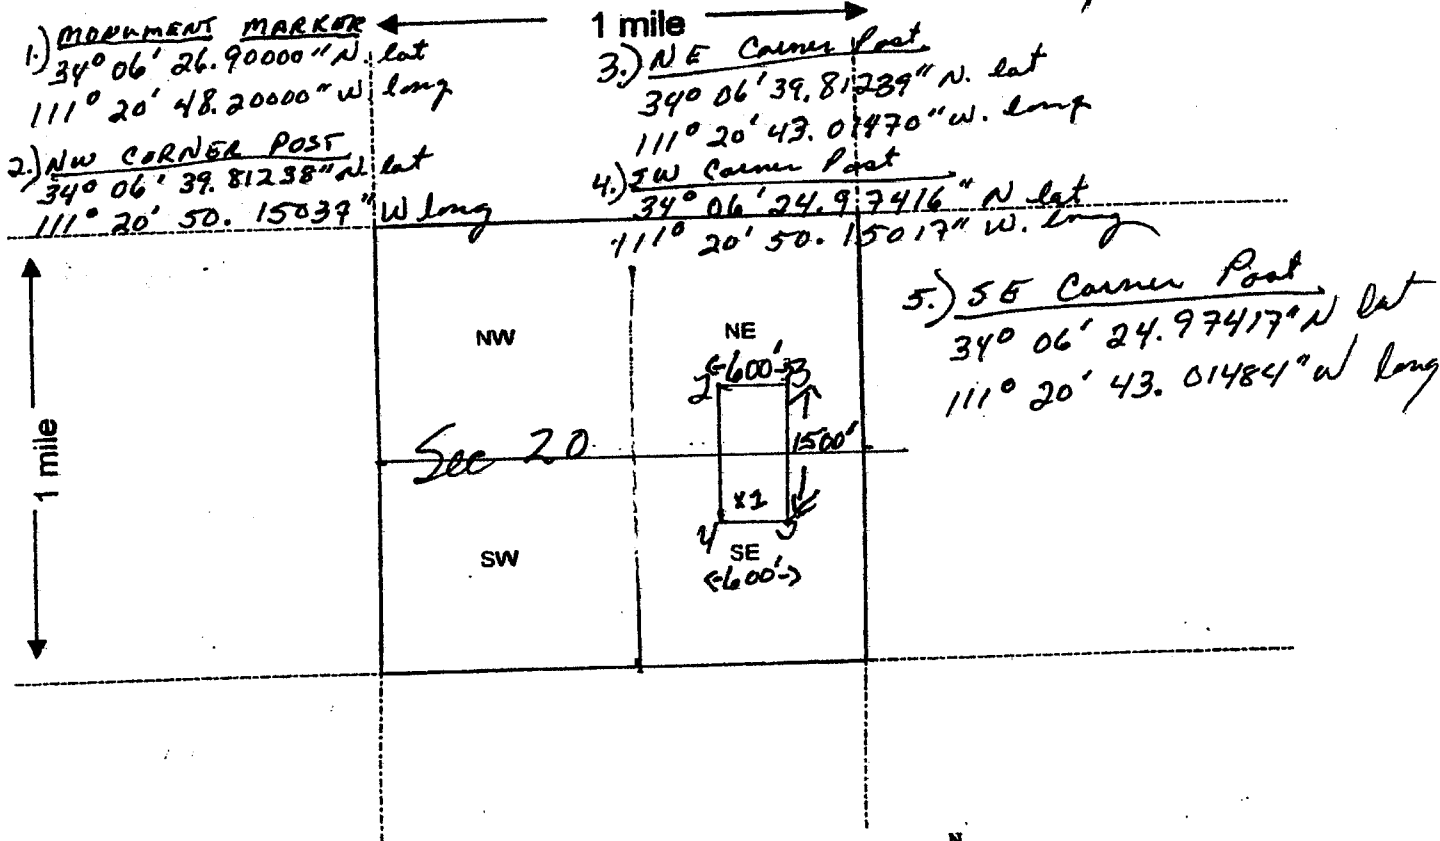 1 mile
1.) MONUMENT MARKER
34° 06' 26.90000" N. lat
111° 20' 48.20000" W. long
2.) NW CORNER POST
34° 06' 39.81238" N. lat
111° 20' 50.15037" W long
3.) NE Corner Post
34° 06' 39.81239" N. lat
111° 20' 43.01470" W. long
4.) SW Corner Post
34° 06' 24.97416" N lat
111° 20' 50.15017" W. long
5.) SE Corner Post
34° 06' 24.97417" N lat
111° 20' 43.01484" W long
1 mile
NW
NE
<-600'->
2 3
1500'
Sec 20
x1
4 5
SW
SE
<-600'->
N